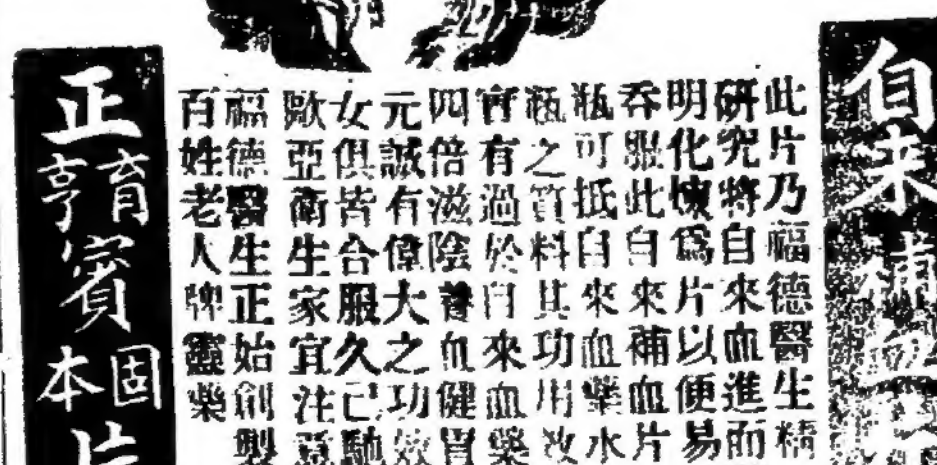 自来補血
此片乃福德醫生精
研究將自來血進而
明化煉爲片以便易
吞服此自來補血片
瓶可抵自來血藥水
瓶之質料其功用效
實有過於自來血藥
四倍滋陰養血健胃
元誠有偉大之功效
女俱皆合服久已馳
歐亞衛生家宜注意
福德醫生正始創製
百姓老人牌靈藥
正育亨賓固本片